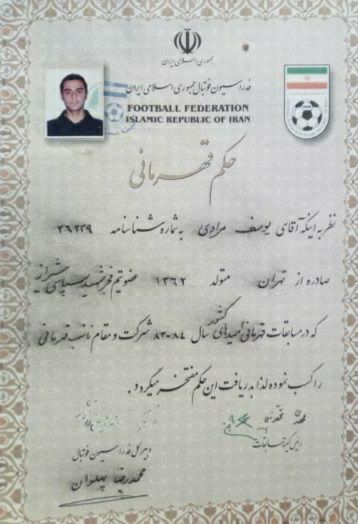 جمهوری اسلامی ایران
فدراسیون فوتبال جمهوری اسلامی ایران
FOOTBALL FEDERATION
ISLAMIC REPUBLIC OF IRAN
حکم قهرمانی
نظر به اینکه آقای یوسف مرادی به شماره شناسنامه ۲۶۲۳۹
صادره از تهران متولد ۱۳۶۲ عضو تیم فجر شهید سپاسی شیراز
که در مسابقات قهرمانی امیدهای کشور سال ۸۴-۸۳ شرکت و مقام نائب قهرمانی
را کسب نموده لذا بدریافت این حکم مفتخر میگردد.
رئیس کمیته مسابقات
دبیر کل فدراسیون فوتبال
محمدرضا پهلوان